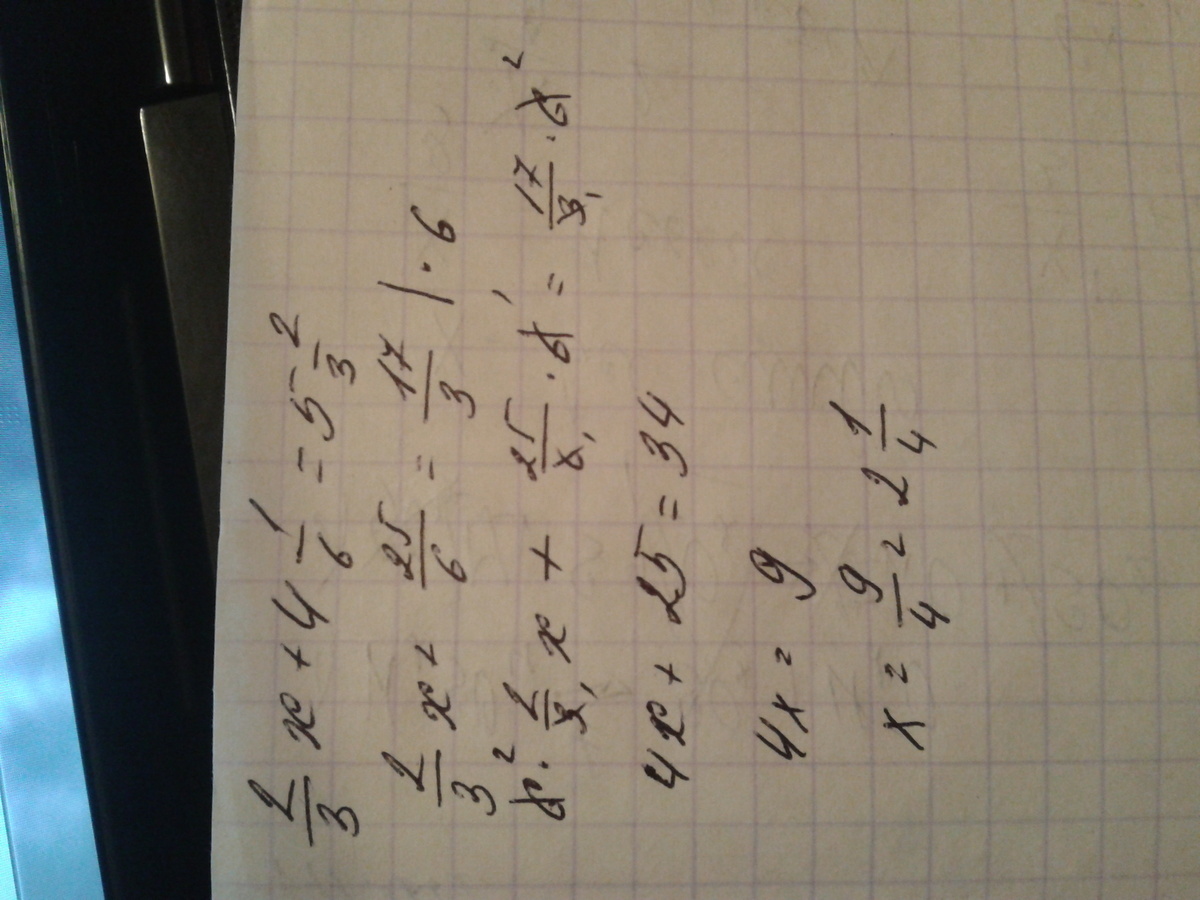 2/3 x + 4 1/6 = 5 2/3
2/3 x + 25/6 = 17/3 | · 6
6² · 2/3₁ x + 25/6₁ · 6¹ = 17/3₁ · 6²
4x + 25 = 34
4x = 9
x = 9/4 = 2 1/4